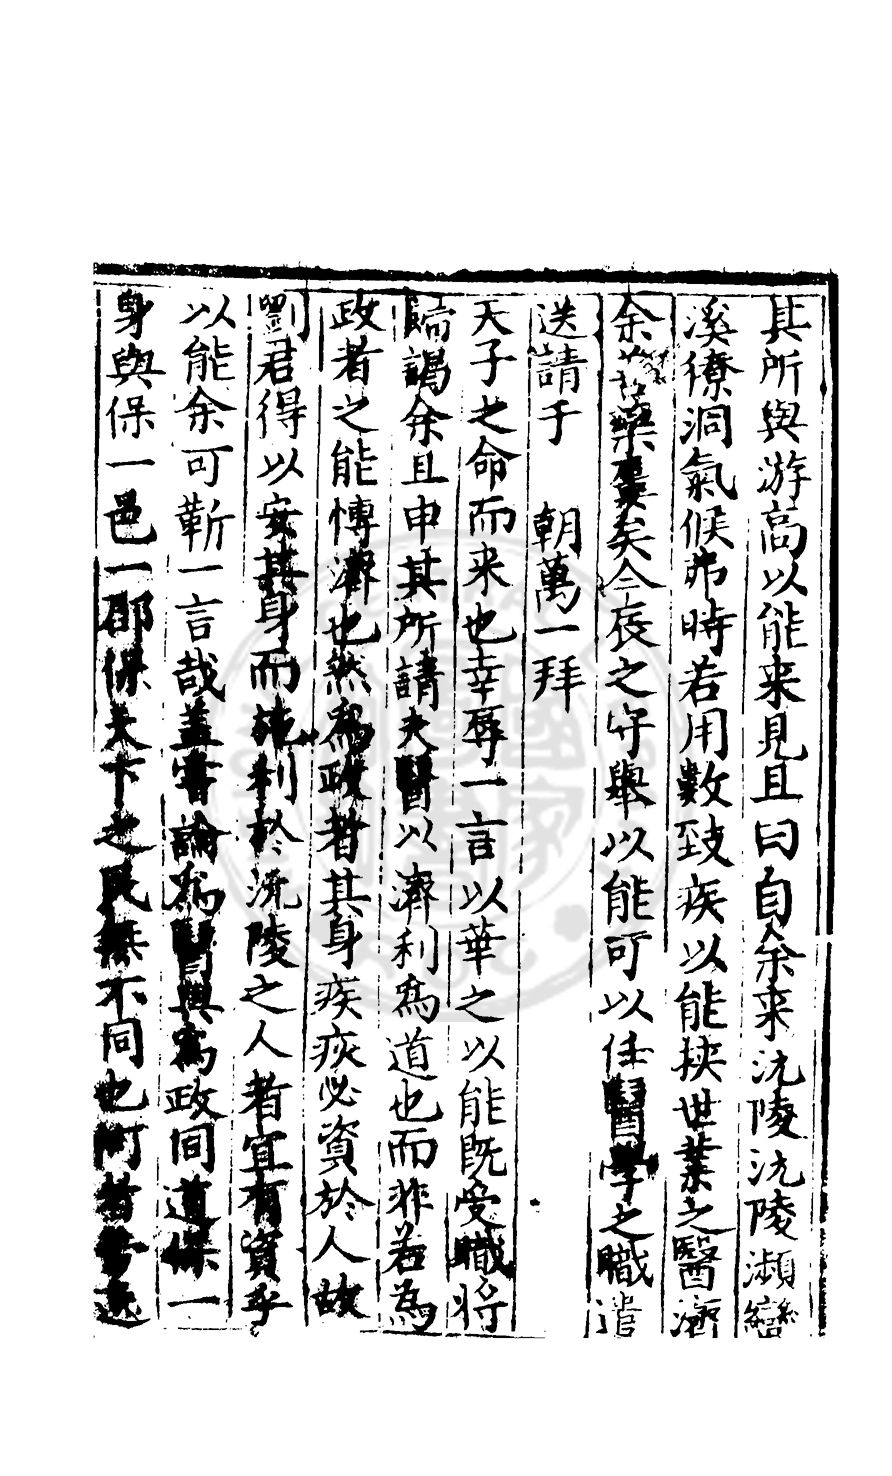 其所與游高以能来見且曰自余来沅陵沅陵瀕蠻
溪獠洞氣候弗時若用數致疾以能挟世業之醫濟
余藥囊矣今辰之守舉以能可以任醫學之職遣
送請于 朝萬一拜
天子之命而来也幸辱一言以華之以能既受職将
歸謁余且申其所請夫醫以濟利為道也而非若為
政者之能愽濟也然為政者其身疾疢必資於人故
劉君得以安其身而施利於沅陵之人者宜有資乎
以能余可靳一言哉盖甞論為醫與為政同道保一
身與保一邑一郡保天下之民無不同也